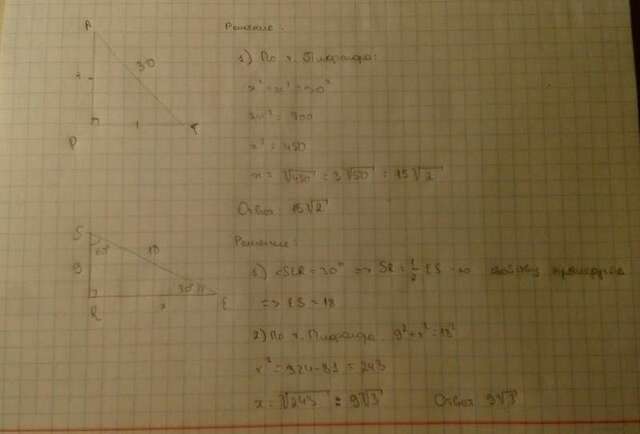 Решение:
1) По т. Пифагора:
x² + x² = 30²
2x² = 900
x² = 450
x = √450 = 3√50 = 15√2
Ответ: 15√2
A
30
P
Решение:
1) = 30° => SR = 1/2 ES - по свойству
=> ES = 18
2) По т. Пифагора 9² + x² = 18²
x² = 324 - 81 = 243
x = √243 = 9√3 Ответ 9√3
S
60°
18
9
30°
R
x
E